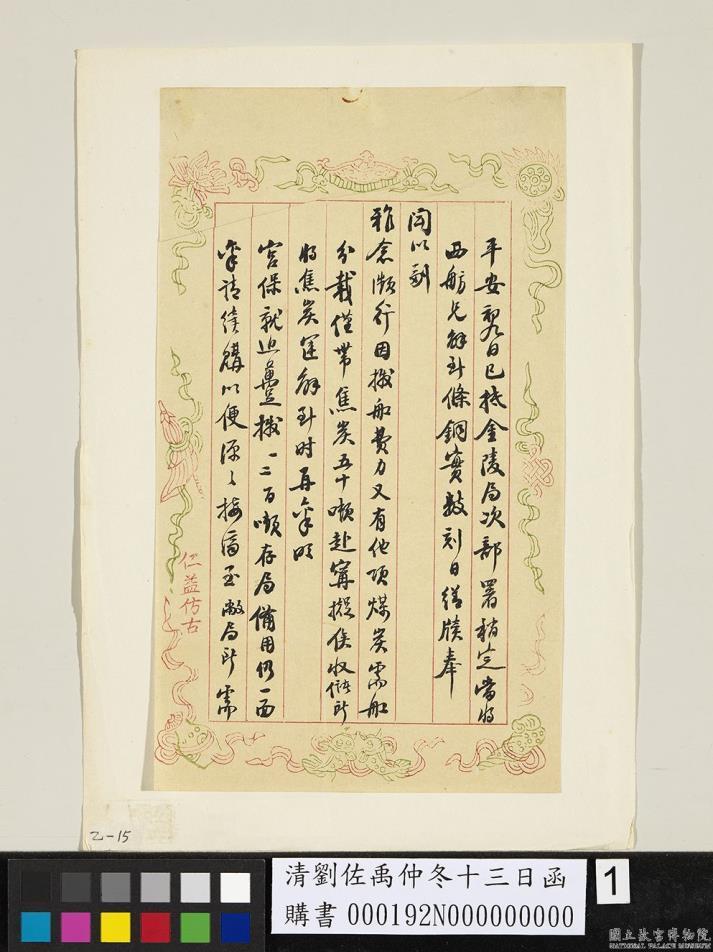 平安翌日已抵金陵局次部署稍定當將
西舫兄解到條銅實數刻日繕牘奉
聞以副
雅念瀕行因撥船費力又有他項煤炭需船
分載僅帶焦炭五十噸赴寧擬俟收儲所
將焦炭運解到時再稟明
宮保就近躉撥一二百噸存局備用仍一面
稟請續購以便源々接濟至敝局所需
仁益仿古
乙-15
清劉佐禹仲冬十三日函
購書 000192N000000000
1
國立故宮博物院
NATIONAL PALACE MUSEUM